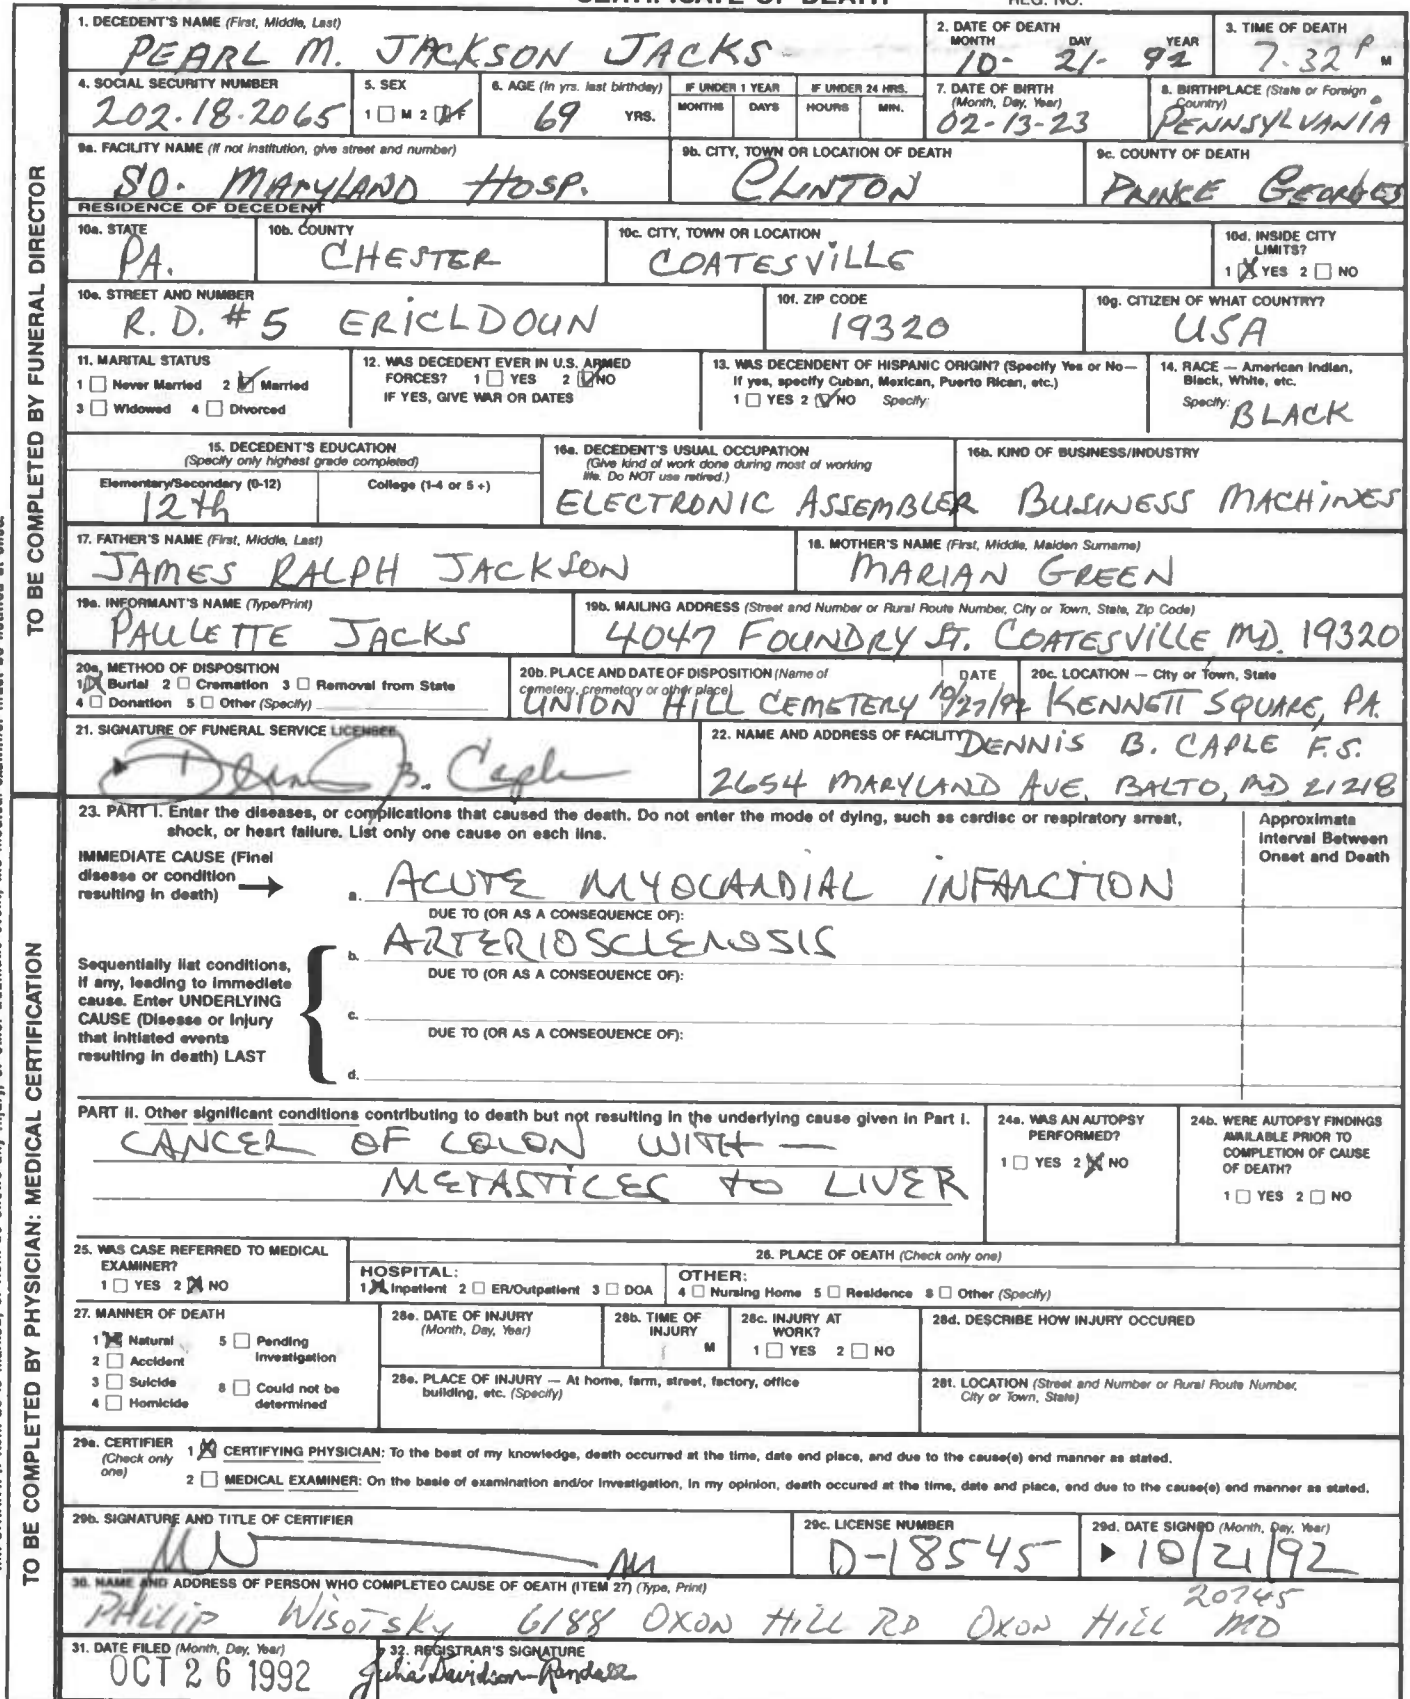 CERTIFICATE OF DEATH REG. NO.
1. DECEDENT'S NAME (First, Middle, Last)
PEARL M. JACKSON JACKS
2. DATE OF DEATH
MONTH DAY YEAR
10- 21- 92
3. TIME OF DEATH
7.32 P M
4. SOCIAL SECURITY NUMBER
202.18.2065
5. SEX
1 M 2 F
6. AGE (In yrs. last birthday)
69 YRS.
IF UNDER 1 YEAR
MONTHS DAYS
IF UNDER 24 HRS.
HOURS MIN.
7. DATE OF BIRTH
(Month, Day, Year)
02-13-23
8. BIRTHPLACE (State or Foreign
Country)
PENNSYLVANIA
9a. FACILITY NAME (If not institution, give street and number)
SO. MARYLAND HOSP.
9b. CITY, TOWN OR LOCATION OF DEATH
CLINTON
9c. COUNTY OF DEATH
PRINCE GEORGES
RESIDENCE OF DECEDENT
10a. STATE
PA.
10b. COUNTY
CHESTER
10c. CITY, TOWN OR LOCATION
COATESVILLE
10d. INSIDE CITY
LIMITS?
1 X YES 2 NO
10e. STREET AND NUMBER
R.D. #5 ERICLDOUN
10f. ZIP CODE
19320
10g. CITIZEN OF WHAT COUNTRY?
USA
11. MARITAL STATUS
1 Never Married 2 Married
3 Widowed 4 Divorced
12. WAS DECEDENT EVER IN U.S. ARMED
FORCES? 1 YES 2 NO
IF YES, GIVE WAR OR DATES
13. WAS DECENDENT OF HISPANIC ORIGIN? (Specify Yes or No—
If yes, specify Cuban, Mexican, Puerto Rican, etc.)
1 YES 2 NO Specify:
14. RACE — American Indian,
Black, White, etc.
Specify:
BLACK
15. DECEDENT'S EDUCATION
(Specify only highest grade completed)
Elementary/Secondary (0-12) College (1-4 or 5+)
12th
16a. DECEDENT'S USUAL OCCUPATION
(Give kind of work done during most of working
life. Do NOT use retired.)
ELECTRONIC ASSEMBLER
16b. KIND OF BUSINESS/INDUSTRY
BUSINESS MACHINES
17. FATHER'S NAME (First, Middle, Last)
JAMES RALPH JACKSON
18. MOTHER'S NAME (First, Middle, Maiden Surname)
MARIAN GREEN
19a. INFORMANT'S NAME (Type/Print)
PAULETTE JACKS
19b. MAILING ADDRESS (Street and Number or Rural Route Number, City or Town, State, Zip Code)
4047 FOUNDRY ST. COATESVILLE, MD. 19320
20a. METHOD OF DISPOSITION
1 X Burial 2 Cremation 3 Removal from State
4 Donation 5 Other (Specify)
20b. PLACE AND DATE OF DISPOSITION (Name of
cemetery, crematory or other place) DATE
UNION HILL CEMETERY 10/27/92
20c. LOCATION — City or Town, State
KENNETT SQUARE, PA.
21. SIGNATURE OF FUNERAL SERVICE LICENSEE
Dennis B. Caple
22. NAME AND ADDRESS OF FACILITY
DENNIS B. CAPLE F.S.
2654 MARYLAND AVE. BALTO, MD 21218
TO BE COMPLETED BY FUNERAL DIRECTOR
23. PART I. Enter the diseases, or complications that caused the death. Do not enter the mode of dying, such as cardiac or respiratory arrest,
shock, or heart failure. List only one cause on each line.
Approximate
Interval Between
Onset and Death
IMMEDIATE CAUSE (Final
disease or condition
resulting in death)
a. ACUTE MYOCARDIAL INFARCTION
DUE TO (OR AS A CONSEQUENCE OF):
b. ARTERIOSCLEROSIS
DUE TO (OR AS A CONSEQUENCE OF):
c.
DUE TO (OR AS A CONSEQUENCE OF):
d.
Sequentially list conditions,
if any, leading to immediate
cause. Enter UNDERLYING
CAUSE (Disease or injury
that initiated events
resulting in death) LAST
PART II. Other significant conditions contributing to death but not resulting in the underlying cause given in Part I.
CANCER OF COLON WITH —
METASTICES TO LIVER
24a. WAS AN AUTOPSY
PERFORMED?
1 YES 2 X NO
24b. WERE AUTOPSY FINDINGS
AVAILABLE PRIOR TO
COMPLETION OF CAUSE
OF DEATH?
1 YES 2 NO
25. WAS CASE REFERRED TO MEDICAL
EXAMINER?
1 YES 2 X NO
26. PLACE OF DEATH (Check only one)
HOSPITAL:
1 X Inpatient 2 ER/Outpatient 3 DOA
OTHER:
4 Nursing Home 5 Residence 8 Other (Specify)
27. MANNER OF DEATH
1 X Natural 5 Pending
Investigation
2 Accident
3 Suicide 8 Could not be
determined
4 Homicide
28a. DATE OF INJURY
(Month, Day, Year)
28b. TIME OF
INJURY
M
28c. INJURY AT
WORK?
1 YES 2 NO
28d. DESCRIBE HOW INJURY OCCURED
28e. PLACE OF INJURY — At home, farm, street, factory, office
building, etc. (Specify)
28f. LOCATION (Street and Number or Rural Route Number,
City or Town, State)
29a. CERTIFIER
(Check only
one)
1 X CERTIFYING PHYSICIAN: To the best of my knowledge, death occurred at the time, date and place, and due to the cause(s) and manner as stated.
2 MEDICAL EXAMINER: On the basis of examination and/or investigation, in my opinion, death occured at the time, date and place, and due to the cause(s) and manner as stated.
29b. SIGNATURE AND TITLE OF CERTIFIER
29c. LICENSE NUMBER
D-18545
29d. DATE SIGNED (Month, Day, Year)
10/21/92
30. NAME AND ADDRESS OF PERSON WHO COMPLETED CAUSE OF DEATH (ITEM 27) (Type, Print)
PHILIP WISOTSKY 6188 OXON HILL RD OXON HILL MD 20745
31. DATE FILED (Month, Day, Year)
OCT 26 1992
32. REGISTRAR'S SIGNATURE
Julia Davidson-Randall
TO BE COMPLETED BY PHYSICIAN: MEDICAL CERTIFICATION